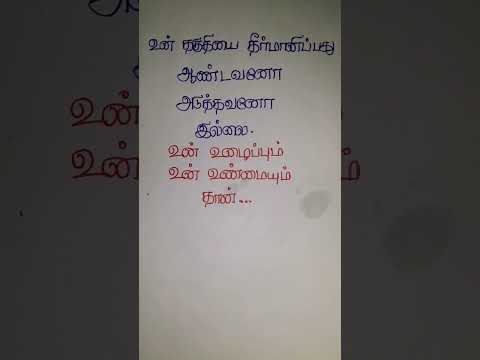 உன் தகுதியை தீர்மானிப்பது
ஆண்டவனோ
அடுத்தவனோ
இல்லை.
உன் உழைப்பும்
உன் உண்மையும்
தான்...